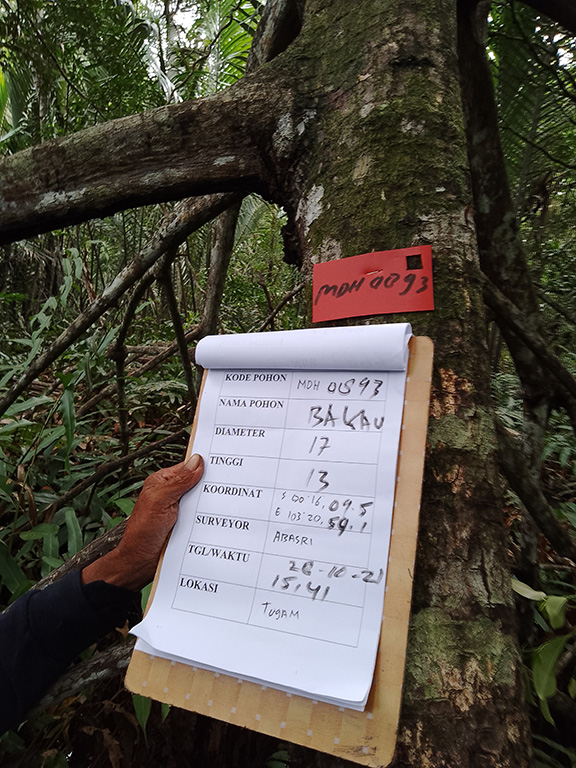 MDH 0093
KODE POHON MDH 0093
NAMA POHON BAKAU
DIAMETER 17
TINGGI 13
KOORDINAT S 00°16, 09.5
E 103°20, 59.1
SURVEYOR ABASRI
TGL/WAKTU 26-10-21
15,41
LOKASI TUGAM